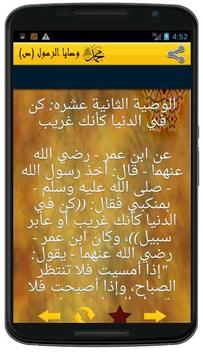 4:52
وصايا الرسول (ص)
الوصية الثانية عشره: كن
في الدنيا كأنك غريب
عن ابن عمر - رضي الله
عنهما - قال: أخذ رسول الله
- صلى الله عليه وسلم -
بمنكبي فقال: ((كن في
الدنيا كأنك غريب أو عابر
سبيل))، وكان ابن عمر -
رضي الله عنهما - يقول:
"إذا أمسيت فلا تنتظر
الصباح، وإذا أصبحت فلا